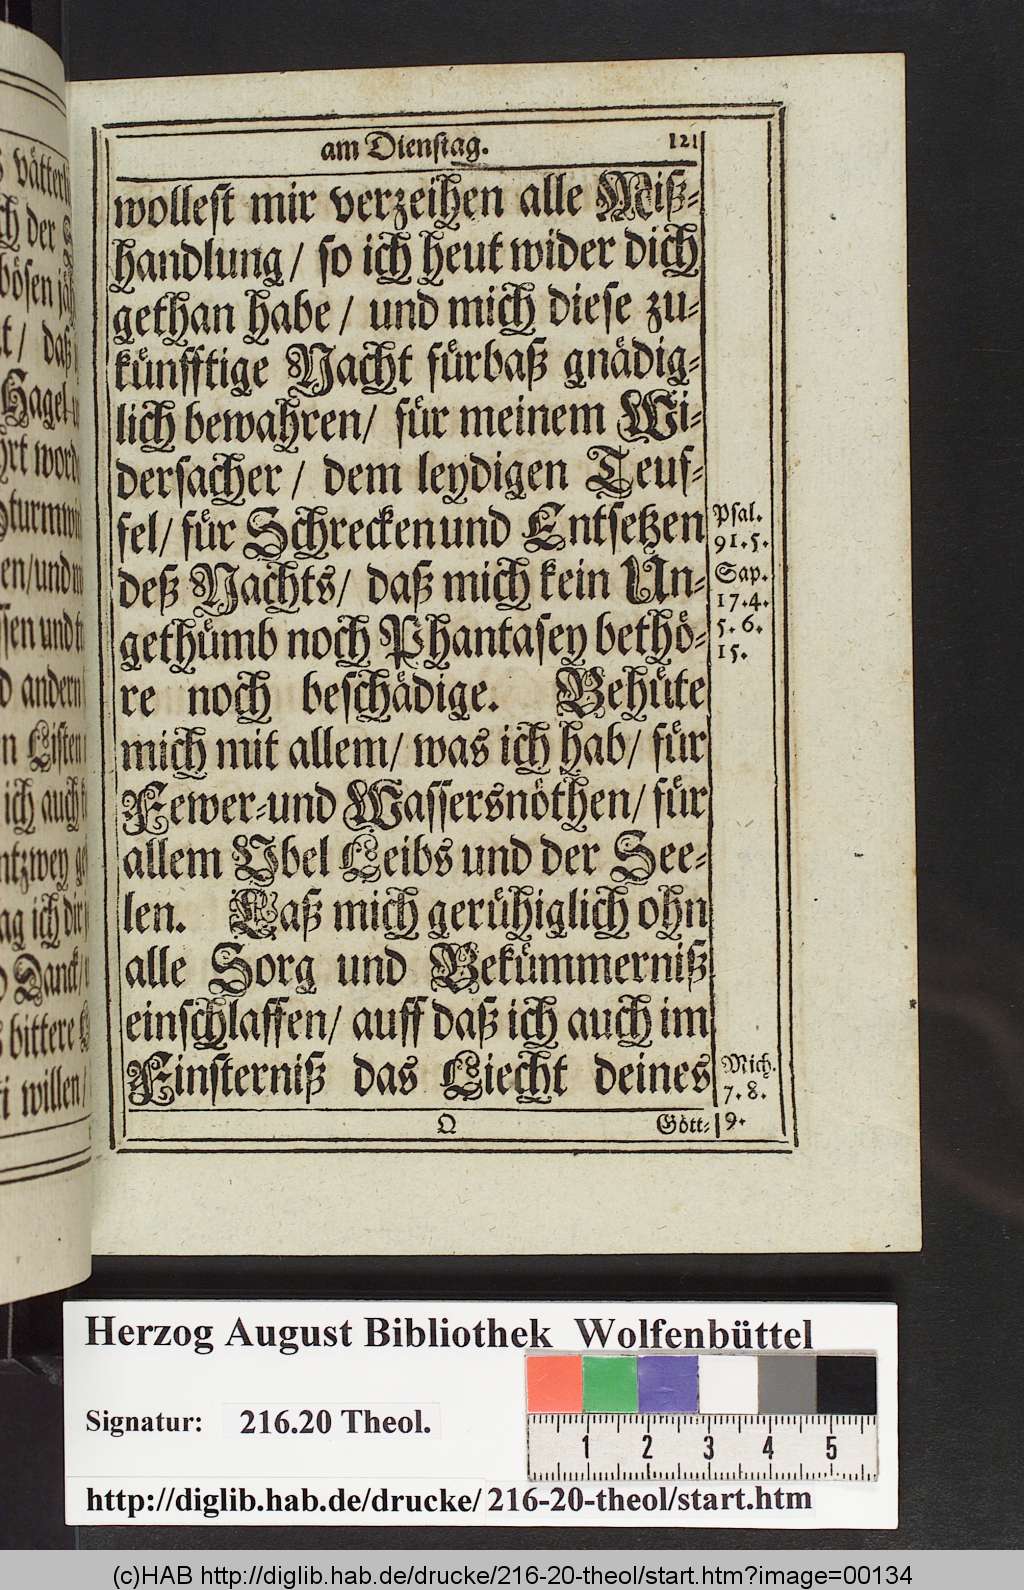 am Dienstag. 121
wollest mir verzeihen alle Miß-
handlung/ so ich heut wider dich
gethan habe/ und mich diese zu-
künfftige Nacht fürbaß gnädig-
lich bewahren/ für meinem Wi-
dersacher/ dem leydigen Teuf-
fel/ für Schrecken und Entsetzen
deß Nachts/ daß mich kein Un-
gethümb noch Phantasey bethö-
re noch beschädige. Behüte
mich mit allem/ was ich hab/ für
Fewer-und Wassersnöthen/ für
allem Vbel Leibs und der See-
len. Laß mich gerühiglich ohn
alle Sorg und Bekümmerniß
einschlaffen/ auff daß ich auch im
Finsterniß das Liecht deines
Q Gött-
Psal.
91.5.
Sap.
17.4.
5.6.
15.
Mich.
7.8.
9.
bösen
daß
Hagel
Sturmwi
en/und
ssen und
andern
Listen
ich auch
ntzwey
ag ich dir
Danck/
bittere
willen/
Herzog August Bibliothek Wolfenbüttel
Signatur: 216.20 Theol.
1 2 3 4 5
http://diglib.hab.de/drucke/216-20-theol/start.htm
(c)HAB http://diglib.hab.de/drucke/216-20-theol/start.htm?image=00134